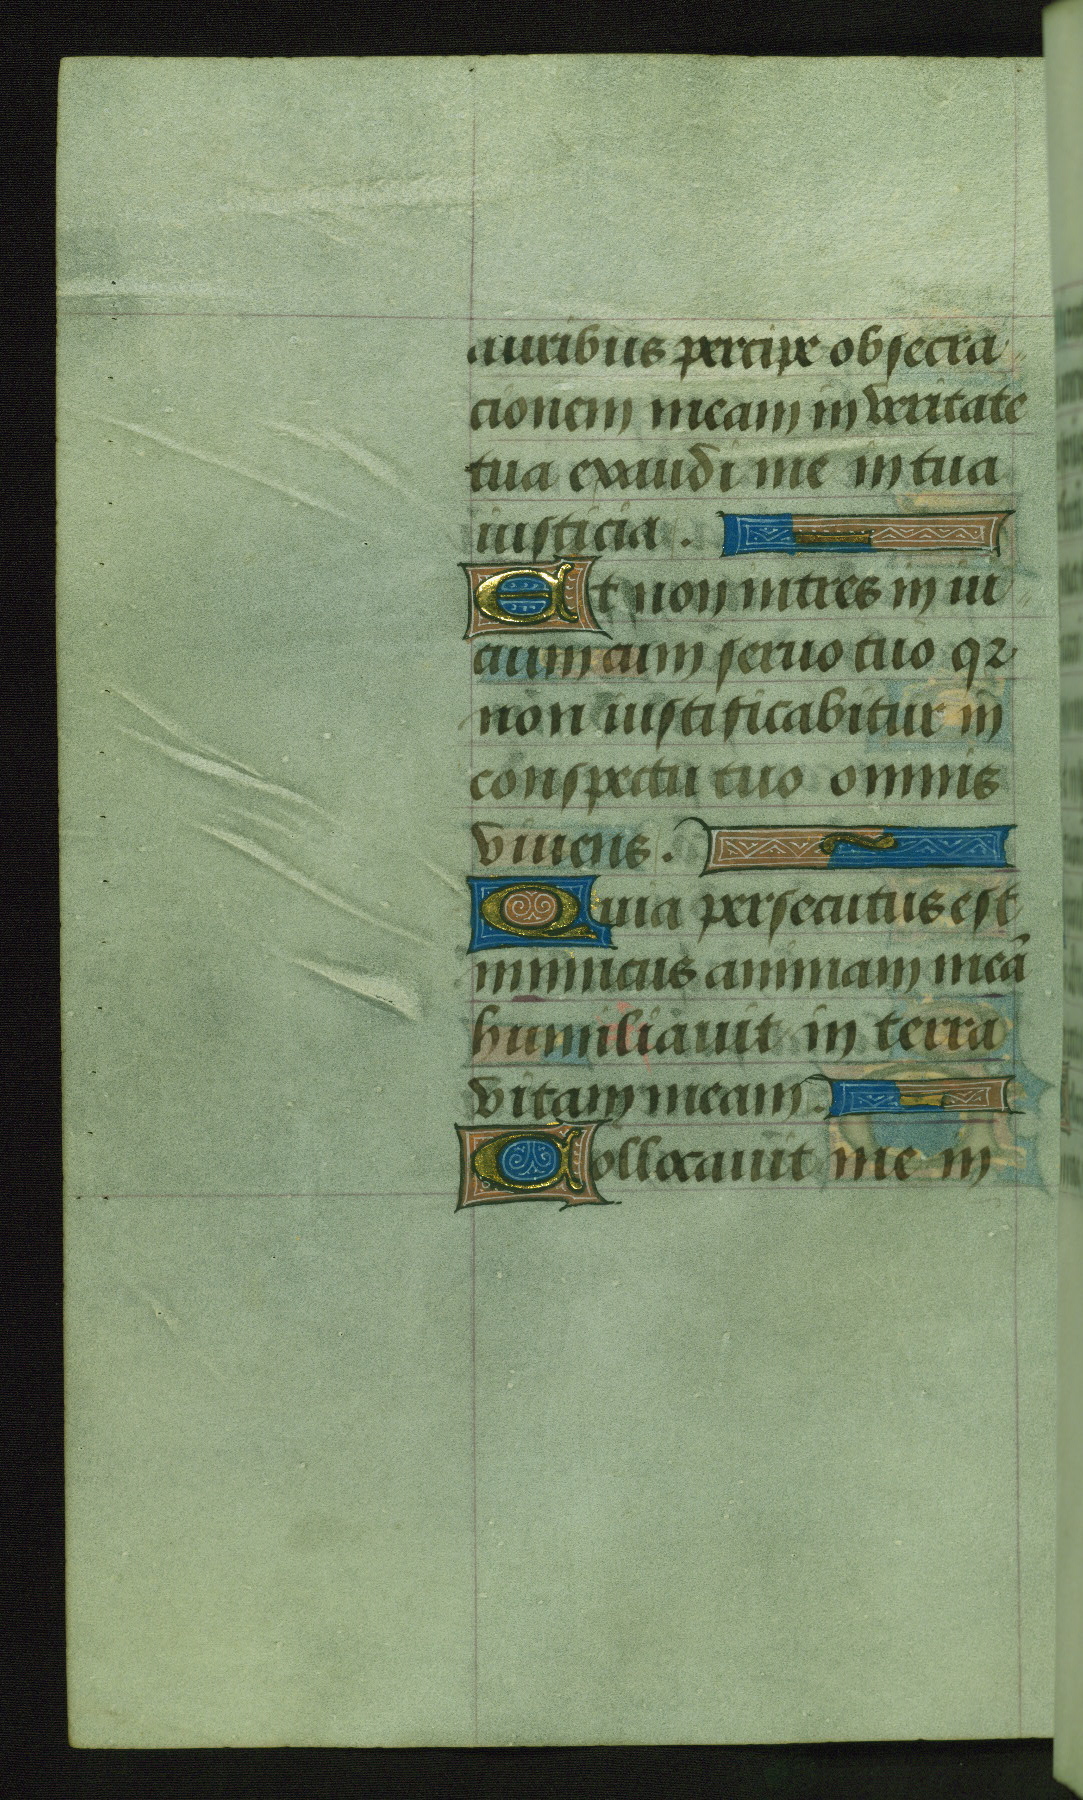 auribus percipe obsecra
cionem meam in veritate
tua exaudi me in tua
iusticia.
Et non intres in iu
cium cum seruo tuo qr
non iustificabitur in
conspectu tuo omnis
viuens.
Quia persecutus est
inimicus animam meā
humiliauit in terra
vitam meam.
Collocauit me in